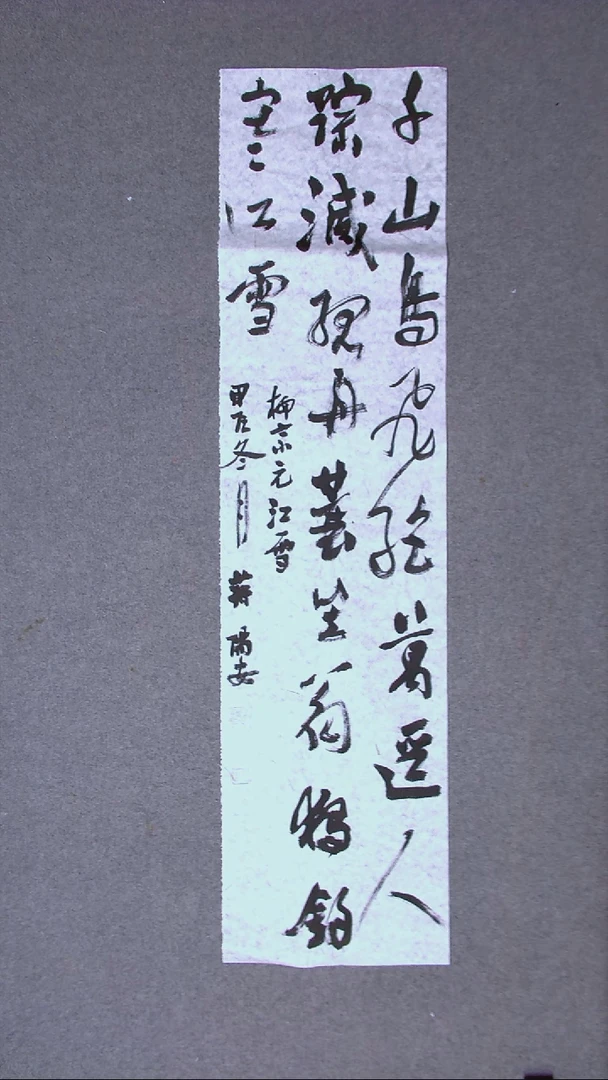 千山鳥飛絕萬逕人
踪滅孤舟蓑笠翁獨釣
寒江雪
柳宗元江雪
甲辰冬月